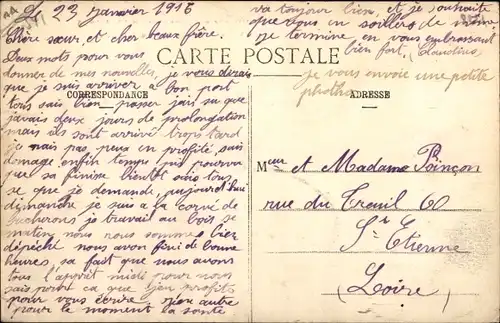 L 23 Janvier 1916
Chère sœur et cher beaux frère.
Deux mots pour vous
donner de mes nouvelles, je vous dirais
que je suis arriver a bon port
tous sais bien passer jais su que
javais deux jours de prolongation
mais ils sont arrivé trops tard
je nais pas peux en profité, sais
domage enfin temps pis pourvu
que sa finise bientôt sais tous
se que je demande, aujourd'hui
dimanche je suis a la corvé de
bucherons je travail au bois se
matin, nous nous somme bien
dépéché nous avon fini de bonne
heures, sa fait que nous avons
tous l'aprèt midi pour nous
sais pour ca que jen profite
pour vous écrire, rien autre
pour le moment la santé
va toujour bien, et je souhaite
que vous en soillers de même
je termine en vous embrassant
bien fort, Claudius
je vous envoie une petite
photho
CARTE POSTALE
CORRESPONDANCE
ADRESSE
Meur et Madame Poinçon
rue du Treuil 60
St Etienne
(Loire)